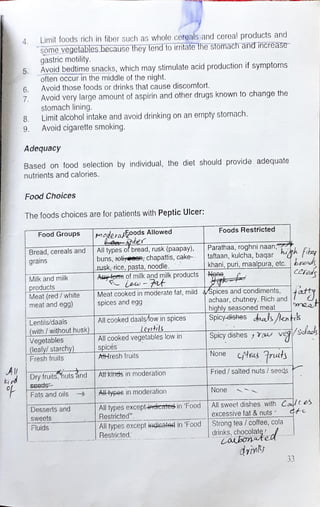 4. Limit foods rich in fiber such as whole cereals and cereal products and
some vegetables because they tend to irritate the stomach and increase
gastric motility.
5. Avoid bedtime snacks, which may stimulate acid production if symptoms
often occur in the middle of the night.
6. Avoid those foods or drinks that cause discomfort.
7. Avoid very large amount of aspirin and other drugs known to change the
stomach lining.
8. Limit alcohol intake and avoid drinking on an empty stomach.
9. Avoid cigarette smoking.
Adequacy
Based on food selection by individual, the diet should provide adequate
nutrients and calories.
Food Choices
The foods choices are for patients with Peptic Ulcer:
Food Groups
moderate Foods Allowed
fiber
Foods Restricted
Bread, cereals and
grains
All types of bread, rusk (paapay),
buns, roti, chapattis, cake-
rusk, rice, pasta, noodle.
Parathaa, roghni naan,
taftaan, kulcha, baqar
khani, puri, maalpura, etc.
high fiber
breads
cereals
Milk and milk
products
Any form of milk and milk products
Low-fat
None
high fat
Meat (red / white
meat and egg)
Meat cooked in moderate fat, mild
spices and egg
Spices and condiments,
achaar, chutney. Rich and
highly seasoned meat.
fatty
meat
Lentils/daals
(with / without husk)
All cooked daals/low in spices
lentils
Spicy dishes daals/lentils
Vegetables
(leafy/ starchy)
All cooked vegetables low in
spices
Spicy dishes, raw veg/Salads
Fresh fruits
All fresh fruits
None citrus fruits
All
kind
of
Dry fruits, nuts and
seeds
All kinds in moderation
Fried / salted nuts / seeds
Fats and oils →
All types in moderation
None
Desserts and
sweets
All types except indicated in "Food
Restricted".
All sweet dishes with
excessive fat & nuts
etc
Fluids
All types except indicated in "Food
Restricted.
Strong tea / coffee, cola
drinks, chocolate
carbonated
drinks
33